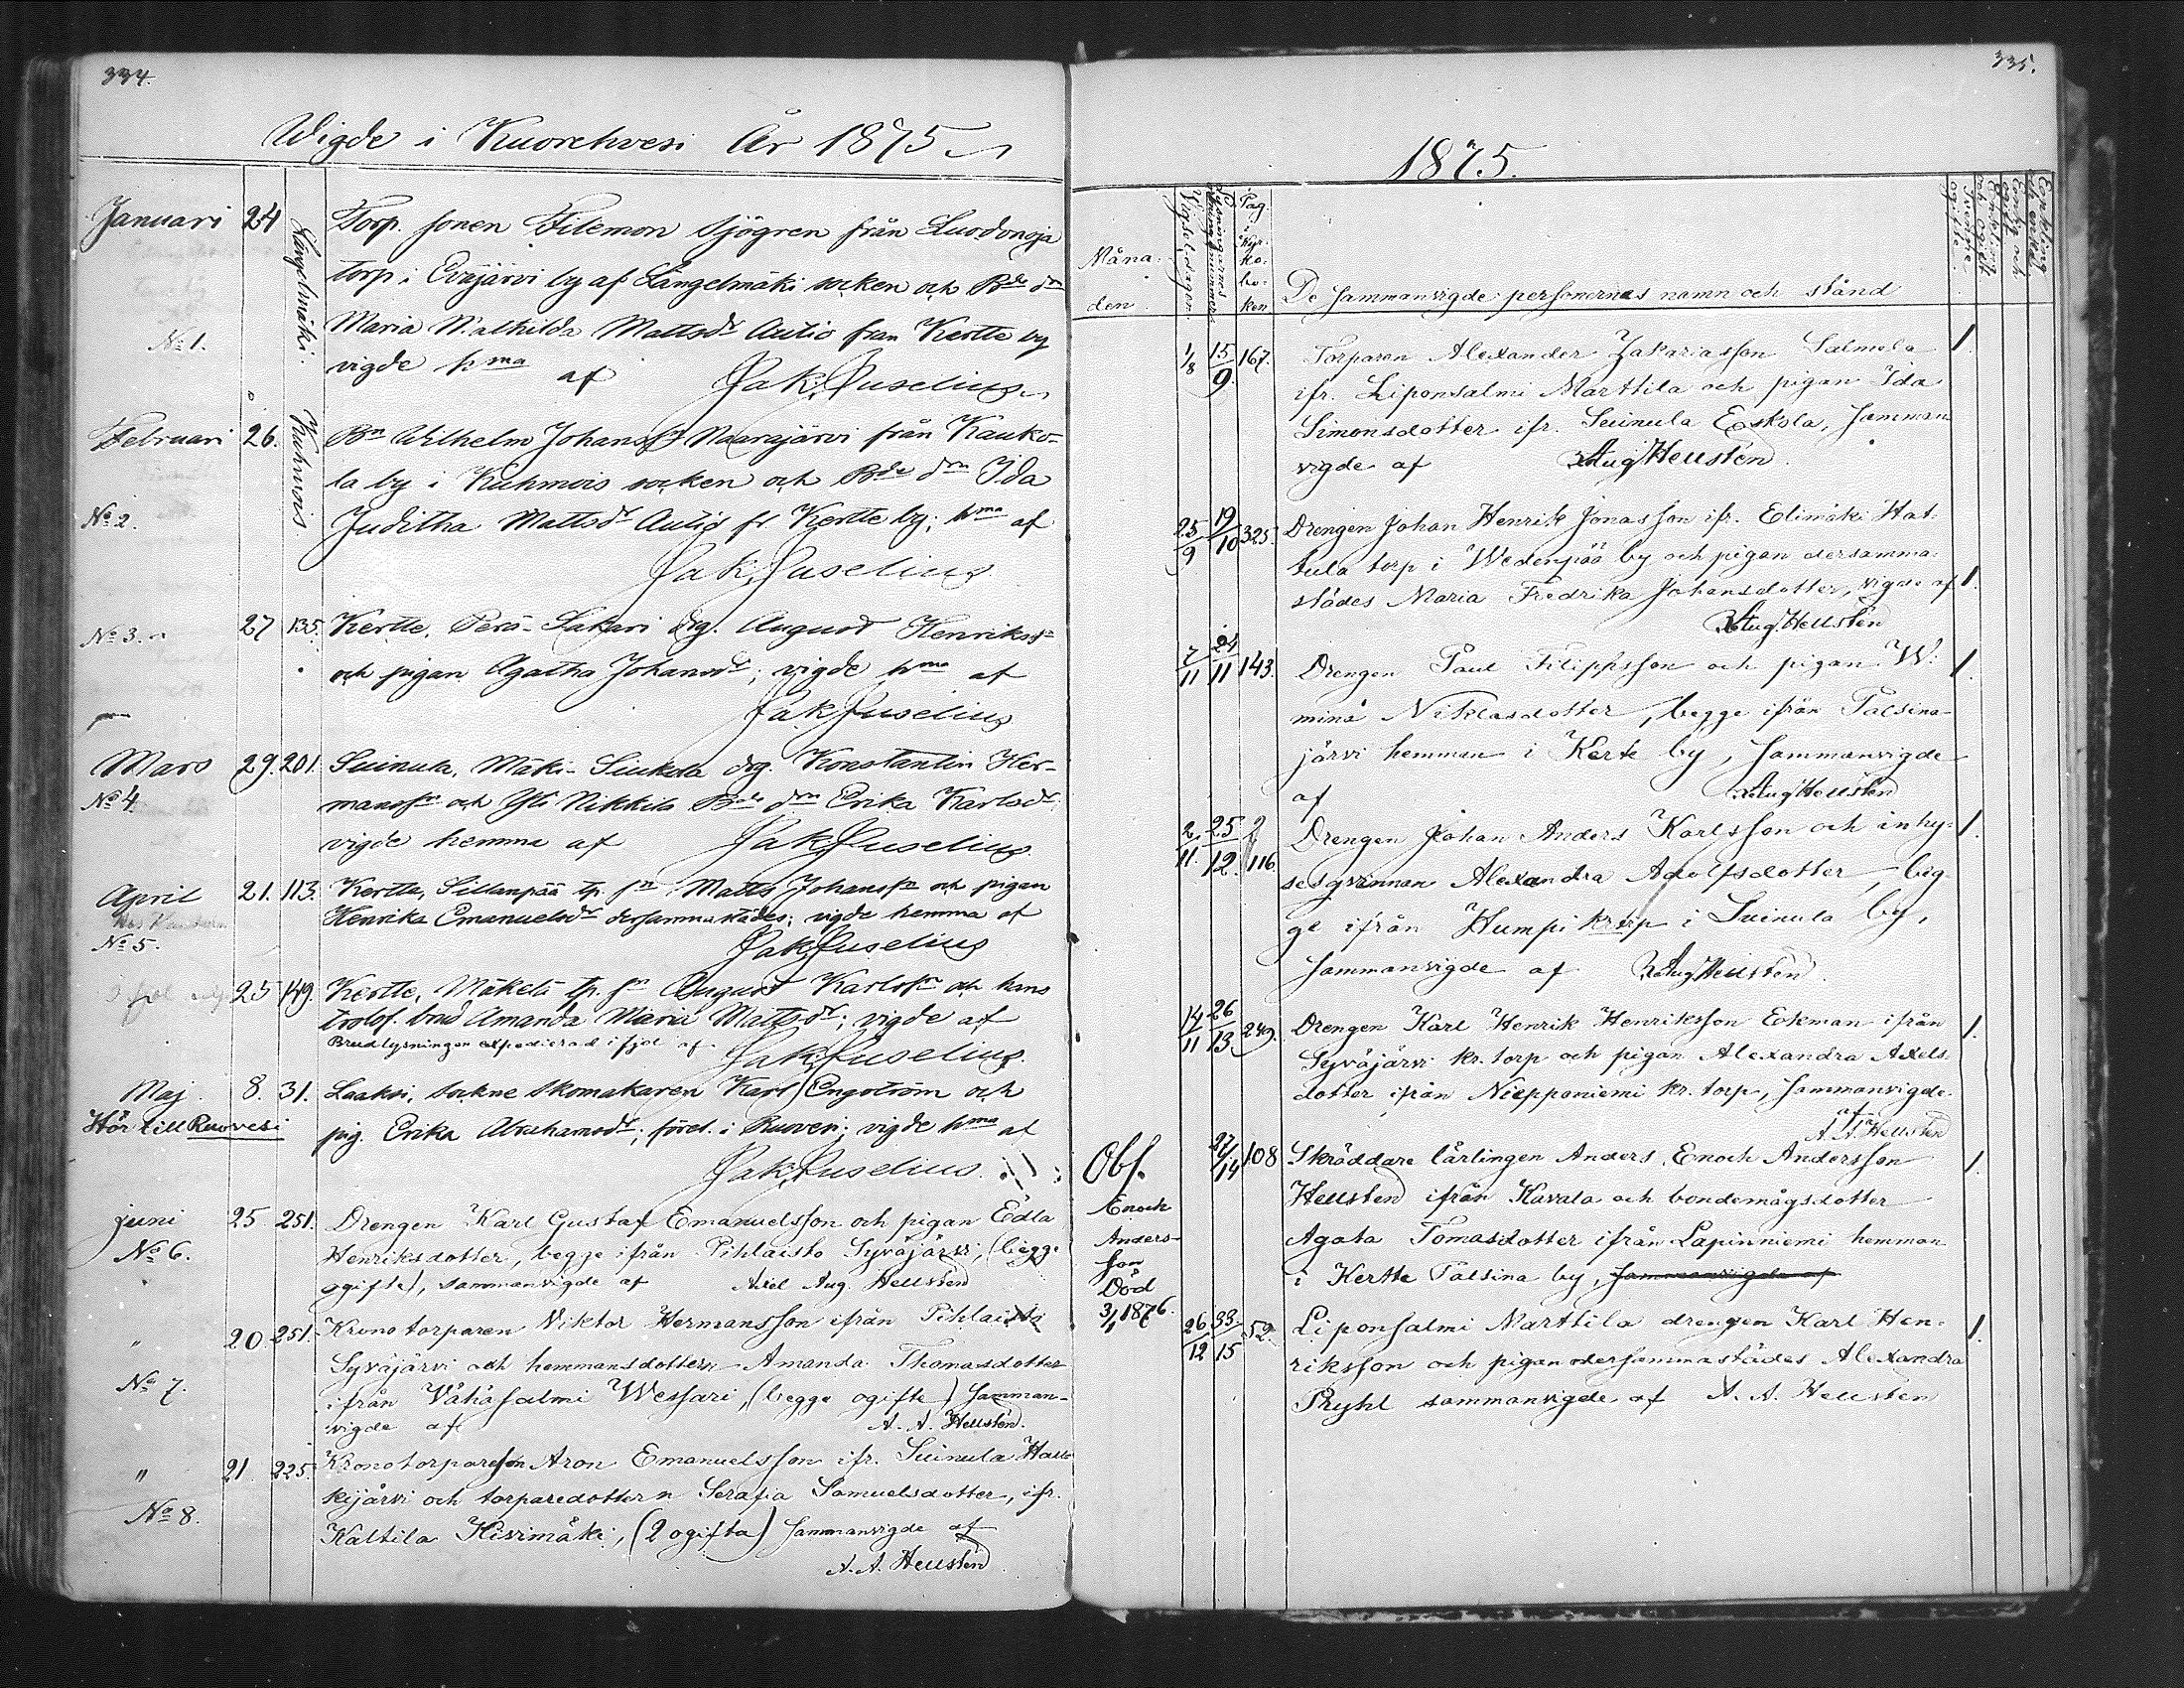 334.
Wigde i Kuorehvesi År 1875
Januari 24 Längelmäki. Torp. sonen Filemon Sjögren från Luodonoja
torp i Eväjärvi by af Längelmäki socken och Bde drn
No 1. Maria Mathilda Mattsdr Autio från Kertte by
vigde hma af Jak. Juselius
Februari 26. Kuhmois. Bn Wilhelm Johanss. Naarajärvi från Kauko-
la by i Kuhmois socken och Bde drn Ida
No 2. Juditha Mattsdr Autio fr. Kertte by; hma af
Jak. Juselius
No 3. 27 135. Kertte, Perä-Sakari drg. August Henrikss
och pigan Agatha Johansdr; vigde hma af
Jak. Juselius
Mars 29. 201. Suinula, Mäki-Siukola drg. Konstantin Her-
No 4 mansson och Yli Nikkilä Bde drn Erika Karlsdr
vigde hemma af Jak. Juselius.
April 21. 113. Kertte, Sillanpää tp. sn Matts Johanssn och pigan
Henrika Emanuelsdr dersammastädes; vigde hemma af
No 5. Jak. Juselius
25 149. Kertte, Mäkelä tp. sn August Karlssn och hans
trolof. brud Amanda Maria Mattsdr; vigde af
Brudlysningen expedierad i fjol af. Jak. Juselius.
Maj. 8. 31. Laaksi, sockne skomakaren Karl Engström och
Hör till Ruovesi pig. Erika Abrahamsdr; förel. i Ruovesi; vigde hma af
Jak. Juselius.
juni 25 251. Drengen Karl Gustaf Emanuelsson och pigan Edla
No 6. Henriksdotter, begge ifrån Pihlaisto Syväjärvi, (begge
ogifte), sammanvigde af Axel Aug. Hellsten
" 20. 251. Kronotorparen Viktor Hermansson ifrån Pihlaisto
Syväjärvi och hemmansdottern Amanda Thomasdotter
No 7. ifrån Vähäsalmi Wessari, (begge ogifte) samman-
vigde af A. A. Hellsten.
" 21 225. Kronotorpareson Aron Emanuelsson ifr. Suinula
kijärvi och torparedottern Serafia Samuelsdotter, ifr.
No 8. Kaltila Hirvimäki, (2 ogifta) sammanvigde af
A. A. Hellsten
335.
1875.
Måna-
den
Vigseldagen. Lysningarnes Pag. i Kyr-
ko-
bo-
ken De sammanvigde personernes namn och stånd
1/8 15/9. 167. Torparen Alexander Zakariasson Salmela 1.
ifr. Liponsalmi Marttila och pigan Ida
Simonsdotter ifr. Suinula Eskola, samman
vigde af Ax Aug Hellsten.
25/9 19/10 325. Drengen Johan Henrik Jonasson ifr. Elimäki Hat-
tula torp i Wedenpää by och pigan dersamma-
städes Maria Fredrika Johansdotter, vigde af 1.
Ax Aug. Hellsten
7/11 24/11 143. Drengen Paul Filippsson och pigan W: 1.
mina Niklasdotter, begge ifrån Palsina-
järvi hemman i Kerte by, sammanvigde
af Ax Aug Hellsten
2/11. 25/12. 2/116. Drengen Johan Anders Karlsson och inhy- 1.
sesqvinnan Alexandra Adolfsdotter, beg-
ge ifrån Humpi kr. torp i Suinula by,
sammanvigde af Ax Aug Hellsten.
14/11 26/13. 249. Drengen Karl Henrik Henriksson Eckman ifrån 1.
Syväjärvi kr. torp och pigan Alexandra Axels-
dotter ifrån Niepponiemi kr. torp, sammanvigde.
af A. A. Hellsten
Obs. 27/14 108 Skräddare lärlingen Anders Enoch Andersson 1.
Enoch Hellsten ifrån Kavala och bondemågsdotter
Anders- Agata Tomasdotter ifrån Lapinniemi hemman
son i Kertte Palsina by, sammanvigde af
Död
3/1 1876. 26/12 33/15 52. Liponsalmi Marttila drengen Karl Hen- 1.
riksson och pigan dersammastädes Alexandra
Pryhl sammanvigde af A. A. Hellsten